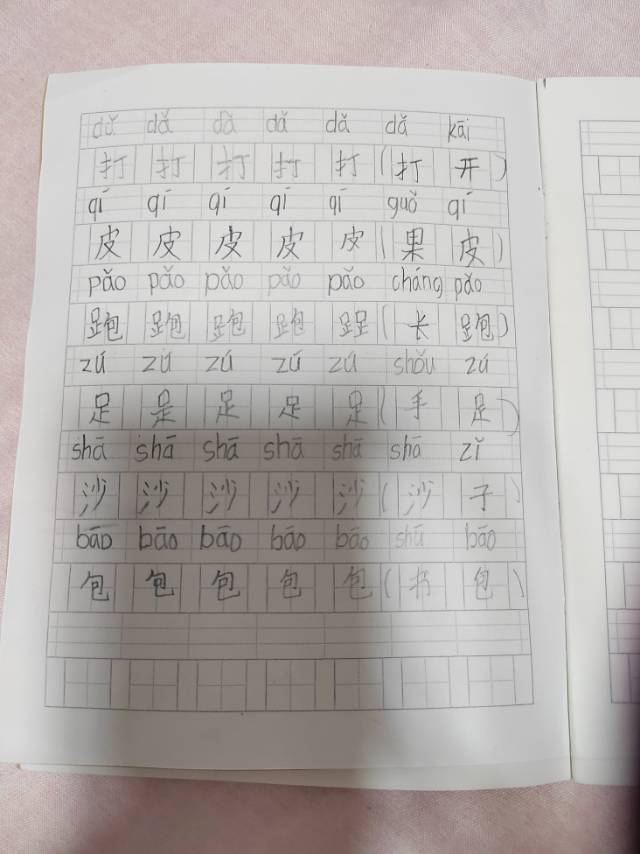 dǎ dǎ dǎ dǎ dǎ dǎ kāi
打 打 打 打 打 ( 打 开 )
qí qí qí qí qí guǒ qí
皮 皮 皮 皮 皮 ( 果 皮 )
pǎo pǎo pǎo pǎo pǎo cháng pǎo
跑 跑 跑 跑 ( 长 跑 )
zú zú zú zú zú shǒu zú
足 足 足 足 足 ( 手 足 )
shā shā shā shā shā shā zǐ
沙 沙 沙 沙 沙 ( 沙 子 )
bāo bāo bāo bāo bāo shū bāo
包 包 包 包 包 ( 书 包 )